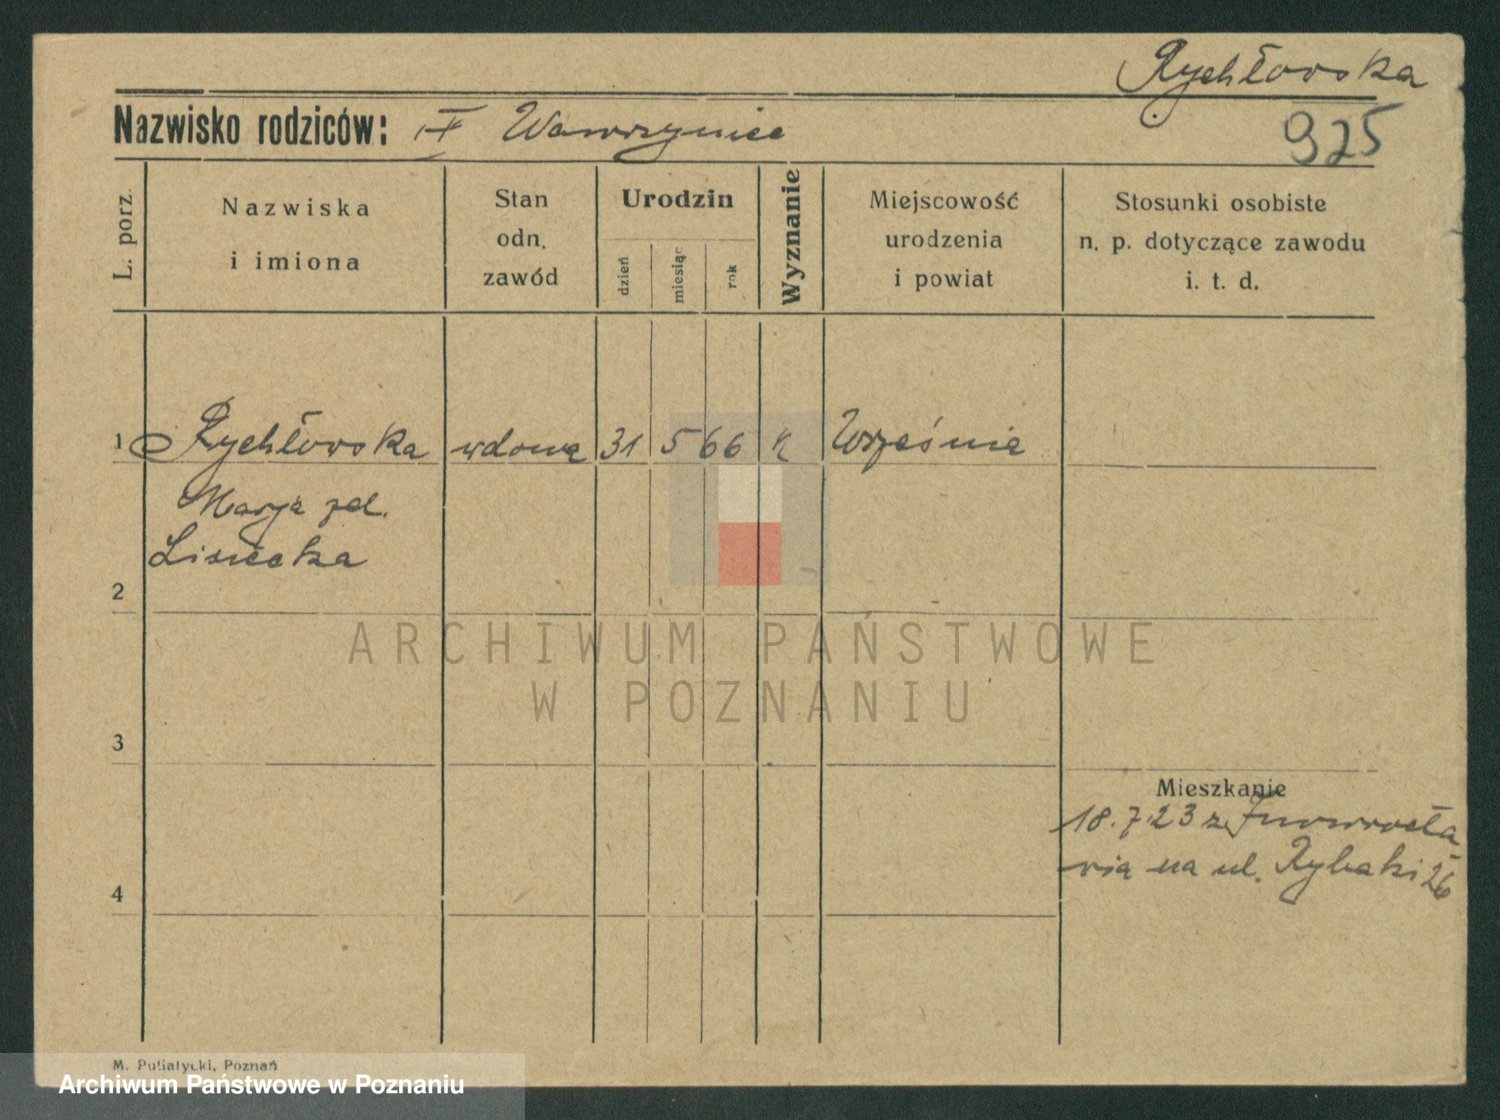 Rychłowska
Nazwisko rodziców: Wawrzyniec
925
L. porz.
Nazwiska
i imiona
Stan
odn.
zawód
Urodzin
dzień
miesiąc
rok
Wyznanie
Miejscowość
urodzenia
i powiat
Stosunki osobiste
n. p. dotyczące zawodu
i. t. d.
1 Rychłowska wdowa 31 5 66 k Września
Marja
Lisiecka
2
ARCHIWUM PAŃSTWOWE
W POZNANIU
3
Mieszkanie
18.7.23 z Inowrocła
wia na ul. Rybaki 26
4
M. Putiatycki, Poznań
Archiwum Państwowe w Poznaniu